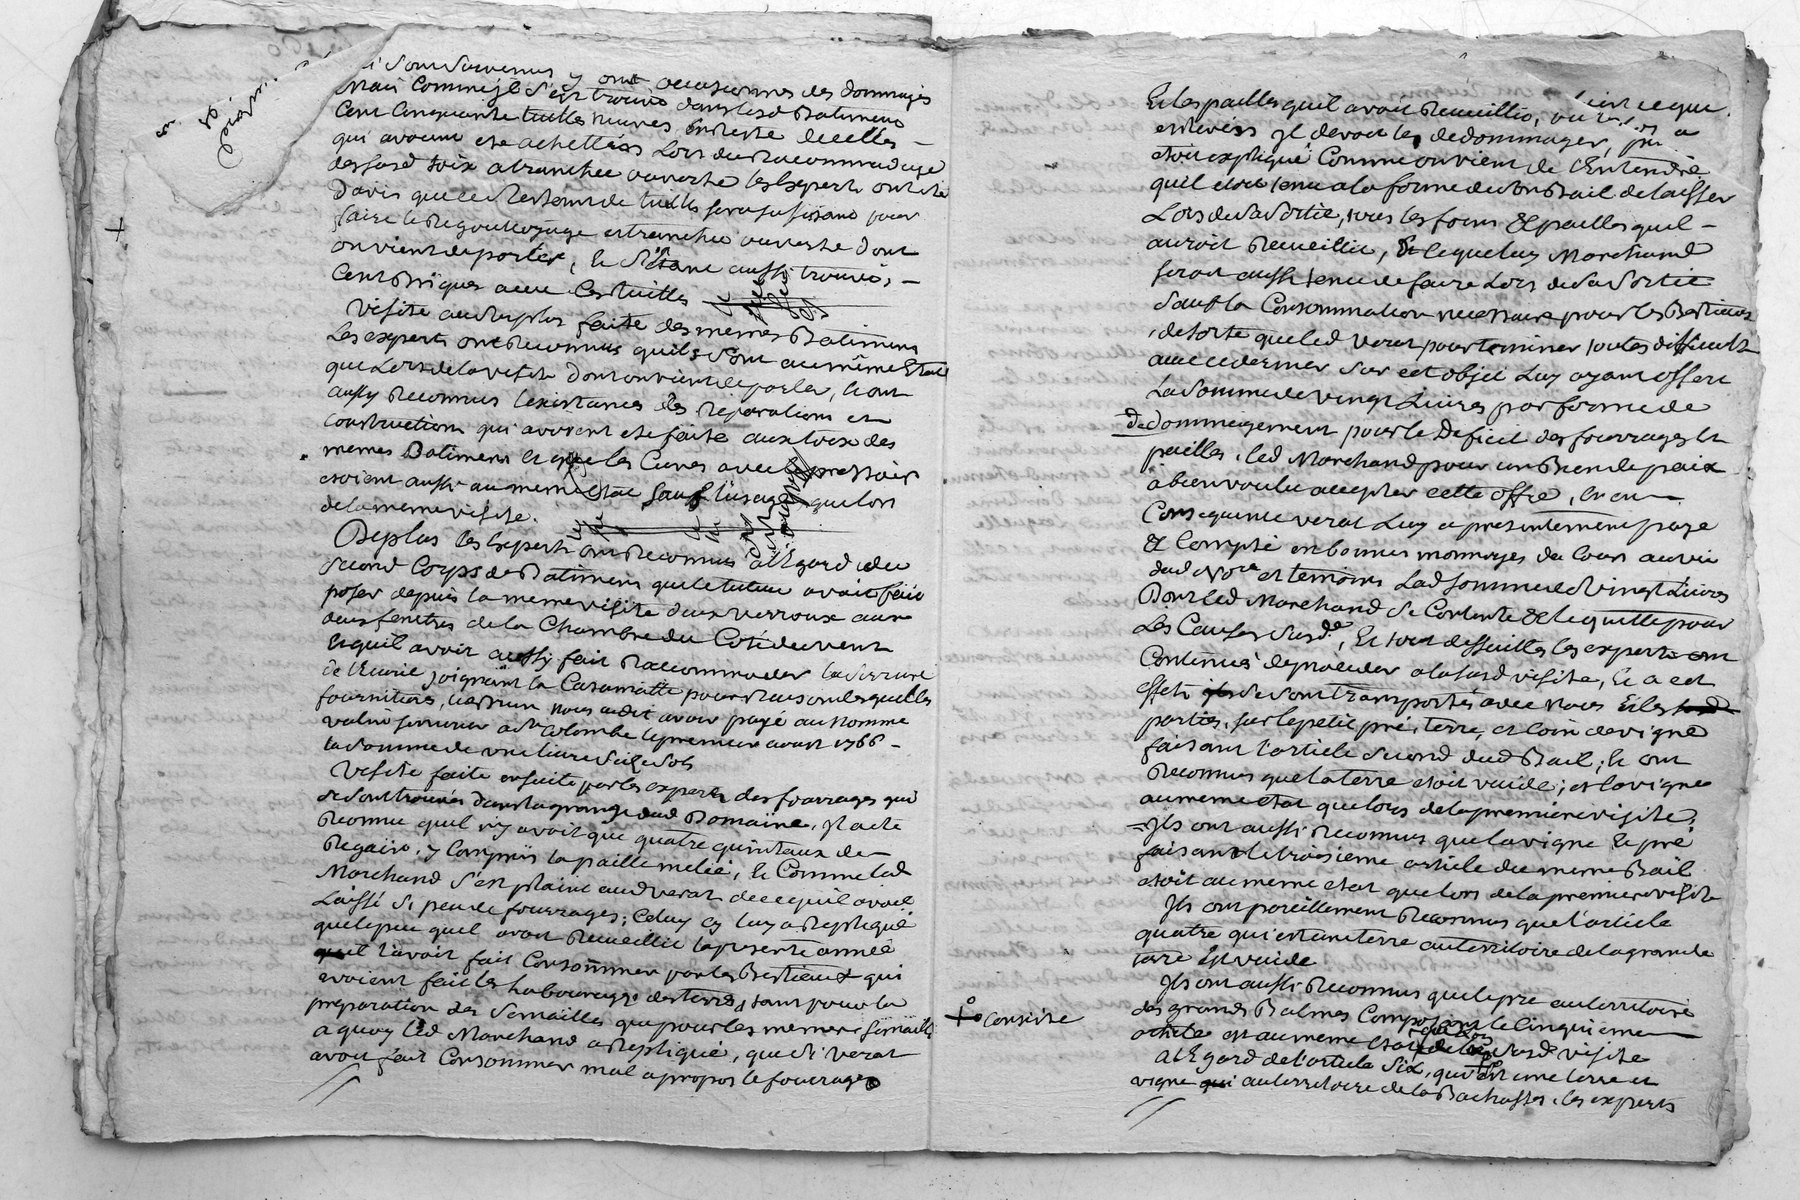 sont survenus y ont occasionnes des dommages
Mais Comme il s'est trouvé dans lesd Batimens
Cent Cinquante tuilles neuves, En reste de celles
qui avoient ete achettées Lors du Racommodage
desd toix a tranchée ouverte les Experts ont ete
D'avis que ce Restant de tuilles sera sufisant pour
faire le Regouttoyage et tranchée ouverte dont
on vient de parler, Et S'etant aussi trouvé,
Cent Briques avec Ces tuilles
Visite au Surplus faite des memes Batimens
Les experts ont Reconnus qu'ils sont au même Etat
que Lors de la visite dont on vient de parler, Et ont
aussy Reconnus l'existances des Reparations et
Constructions qui avoient ete faite aux toix des
memes Batimens et que les Cuves avec pressoir
etoient aussi au meme Etat sauf l'usage que lors
de la meme visite.
Deplus les Experts ont Reconnus a l'Egard du
Second Corps de Batimens que le tuteur avoit fait
poser depuis la meme visite deux verroux aux
deux fenetres de la Chambre du Coté du vent
Et quil avoit aussy fait Raccommoder la serrure
de l'Ecurie joignant la Casamatte pour Raison desquelles
fournitures, led nous a dit avoir payé au nomme
valin serrurier a Ste Colombe le premier aoust 1766
la somme de une livre Seize Sols
Visite faite ensuite par les experts des fourrages qui
se sont trouvés dans la grange dud Domaine, Il a ete
Reconnu quil n'y avoit que quatre quintaux de
Regain, y Compris la paille melée, Et Comme led
Marchand s'est plaint aud verat de ce quil avoit
Laissé Si peu de fourrages; Celuy cy luy a Repliqué
que le peu quil avoit Recueillit la presente année
il l'avoit fait Consommer par les Bestiaux qui
avoient fait les Labourages des terres, tant pour la
preparation des Semailles que pour les memes Semailles
a quoy led Marchand a Repliqué, que Si verat
avoit fait Consommer mal a propos le fourrage
Et les pailles quil avoit Recueillis, ou
enlevées Il devoit les dedommager,
etoit expliqué Comme on vient de l'Entendre
quil etoit tenu a la forme de son Bail de laisser
Lors de sa Sortie, tous les foins Et pailles quil
auroit Recueillie, Et lequel luy Marchand
seroit aussi tenu de faire Lors de sa Sortie
Sauf la Consommation necessaire pour les Bestiaux
, de sorte que led verat pour terminer toutes difficultés
avec ce dernier Sur cet objet Luy ayant offert
La Somme de vingt Livres par forme de
dedommagement pour le Deficit des fourrages Et
pailles, led Marchand pour un Bien de paix
a bien voulu accepter cette offre, Et en
Consequence verat Luy a presentement payé
Et Compté en bonnes monnoyes du Cours au vu
dud Nore et temoins Lad somme de Vingt Livres
Dont led Marchand Se Contente Et le quitte pour
Les Causes Susd., Et tout dessuitte les experts ont
Continués de proceder a la susd visite, Et a cet
effet se sont transportés avec nous Et les
parties, sur le petit pré, terre, et loin de vigne
faisant l'article Second dud Bail, Et ont
Reconnus que la terre etoit vuide; et la vigne
au meme etat que lors de la premiere visite,
Ils ont aussi Reconnus que la vigne Et pré
faisant le troisieme article du meme Bail
etoit au meme etat que lors de la premiere visite
Ils ont pareillement Reconnus que l'article
quatre qui est une terre au territoire de la grande
terre Est vuide
Ils ont aussi Reconnus que le pre au territoire
des grands Balmes Composant le Cinquieme
article est au meme etat que lors de la Susde visite
A l'Egard de l'article Six, qui est une terre et
vigne au territoire de la Bachasse, les experts
Consiste